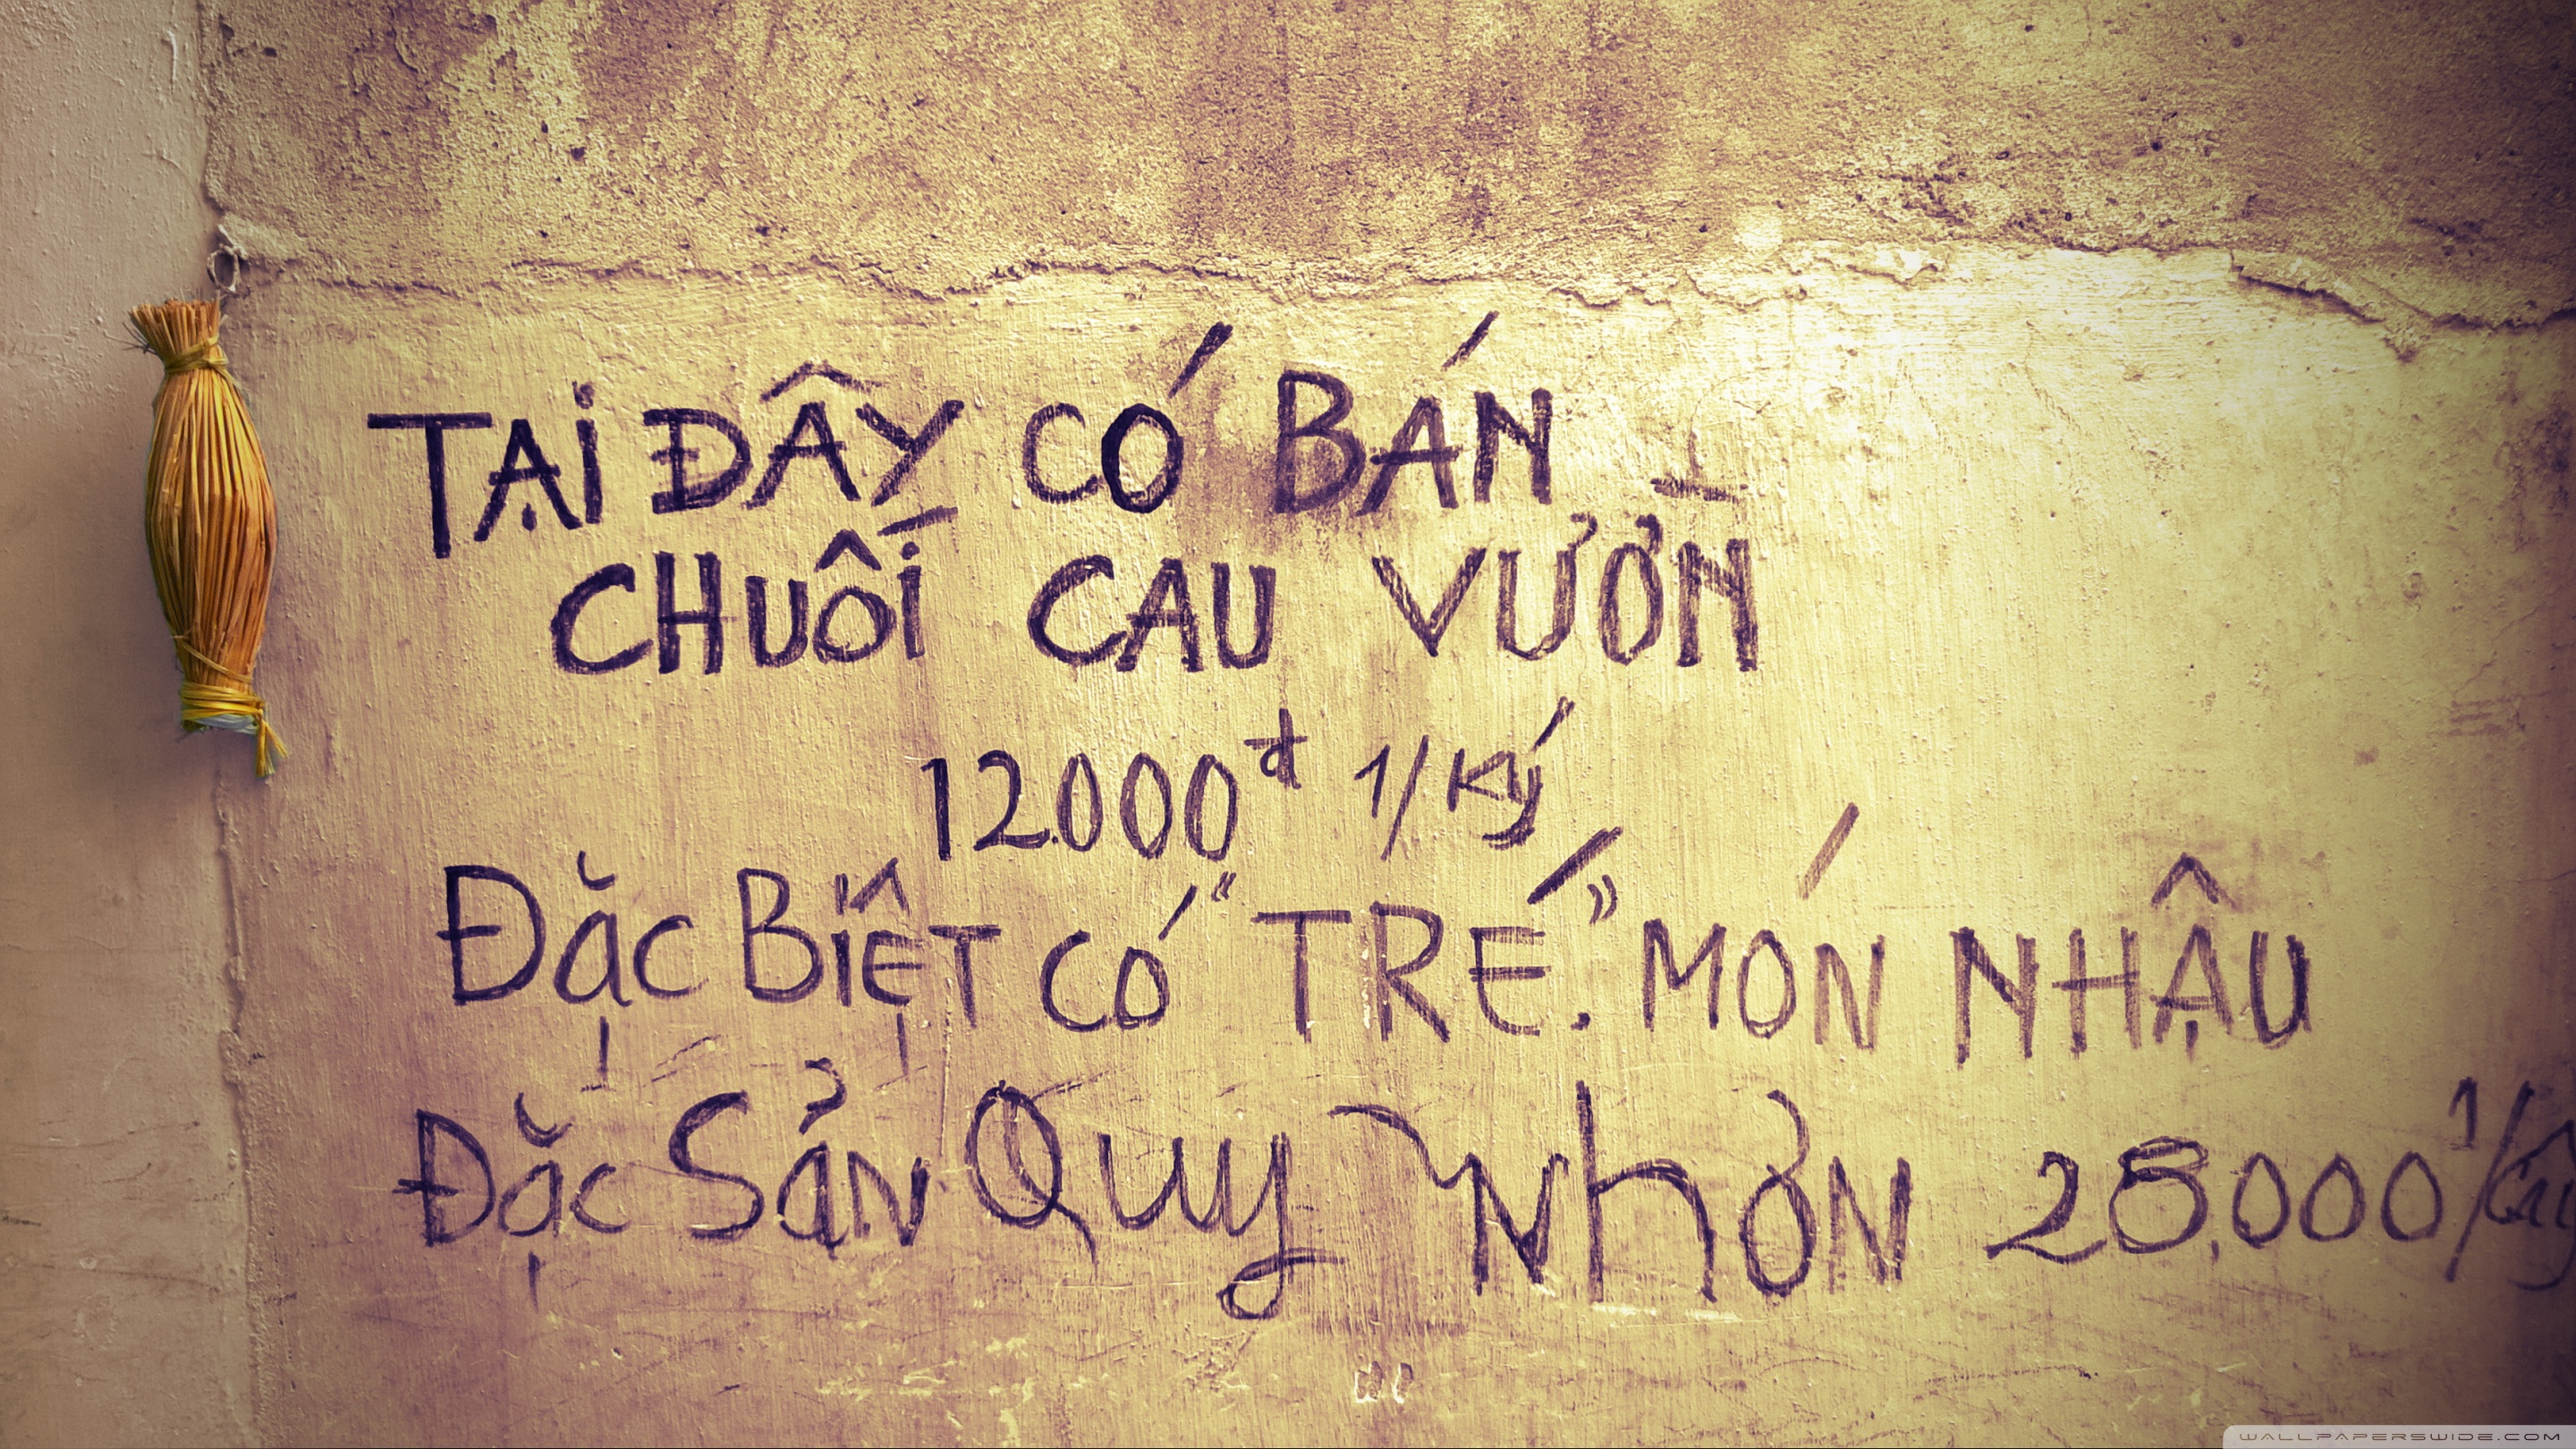 TẠI ĐÂY CÓ BÁN
CHUỐI CAU VƯỜN
12.000đ 1/Ký
ĐẶC BIỆT CÓ "TRÉ." MÓN NHẬU
ĐẶC SẢN QUY NHƠN 25,000 1/
WALLPAPERSWIDE.COM